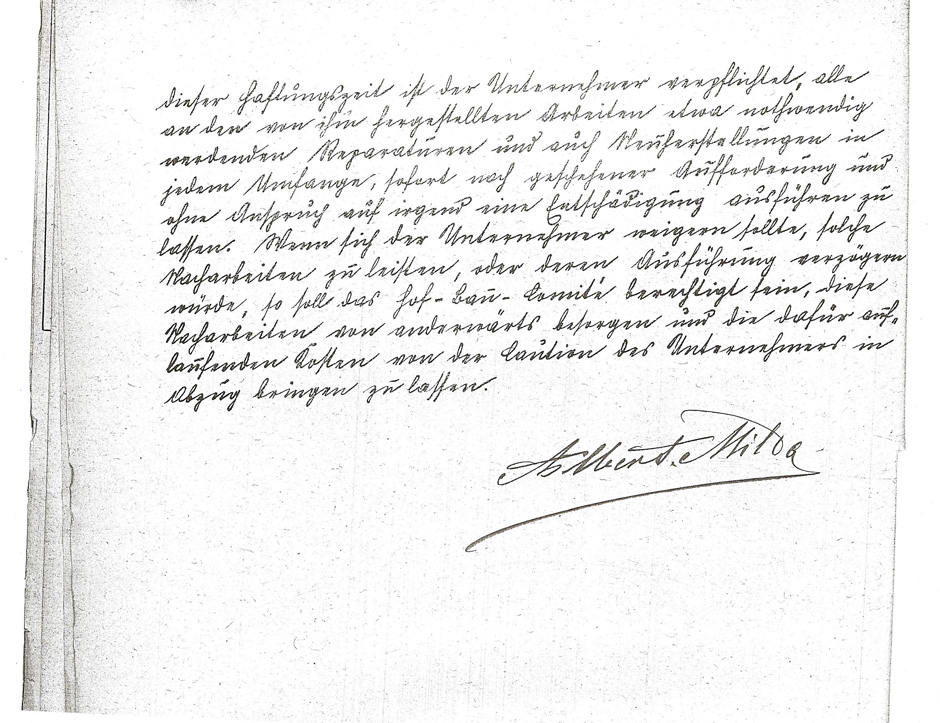 dieser Haftungszeit ist der Unternehmer verpflichtet, alle
an den von ihm hergestellten Arbeiten etwa nothwendig
werdenden Reparaturen und auch Neuherstellungen in
jedem Umfange, sofort nach geschehener Aufforderung und
ohne Anspruch auf irgend eine Entschädigung ausführen zu
lassen. Wenn sich der Unternehmer weigern sollte, solche
Nacharbeiten zu leisten, oder deren Ausführung verzögern
würde, so soll das Hof-Bau-Comité berechtigt sein, diese
Nacharbeiten von anderwärts besorgen und die dafür auf-
laufenden Kosten von der Caution des Unternehmers in
Abzug bringen zu lassen.
Albert Milde